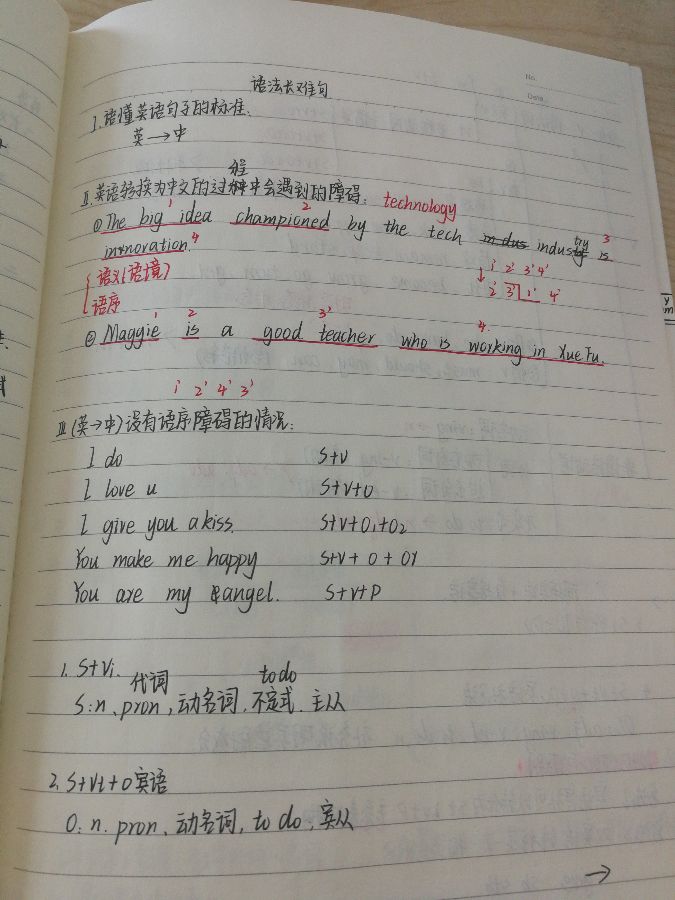 No.
Date.
语法长难句
I.读懂英语句子的标准、
英→中
II.英语转换为中文的过程中会遇到的障碍：technology
①The big idea championed by the tech industry is
innovation.
1 2 3 4
语义(语境)
语序
1' 2' 3' 4'
2' 3' 1' 4'
②Maggie is a good teacher who is working in XueFu.
1 2 3' 4
1' 2' 4' 3'
III(英→中)没有语序障碍的情况：
I do S+V
I love u S+V+O
I give you a kiss. S+V+O1+O2
You make me happy S+V+O+OC
You are my angel. S+V+P
1. S+Vi.
代词 to do
S:n、pron,动名词,不定式.主从
2. S+Vt+O宾语
O:n.pron.动名词,to do,宾从
→